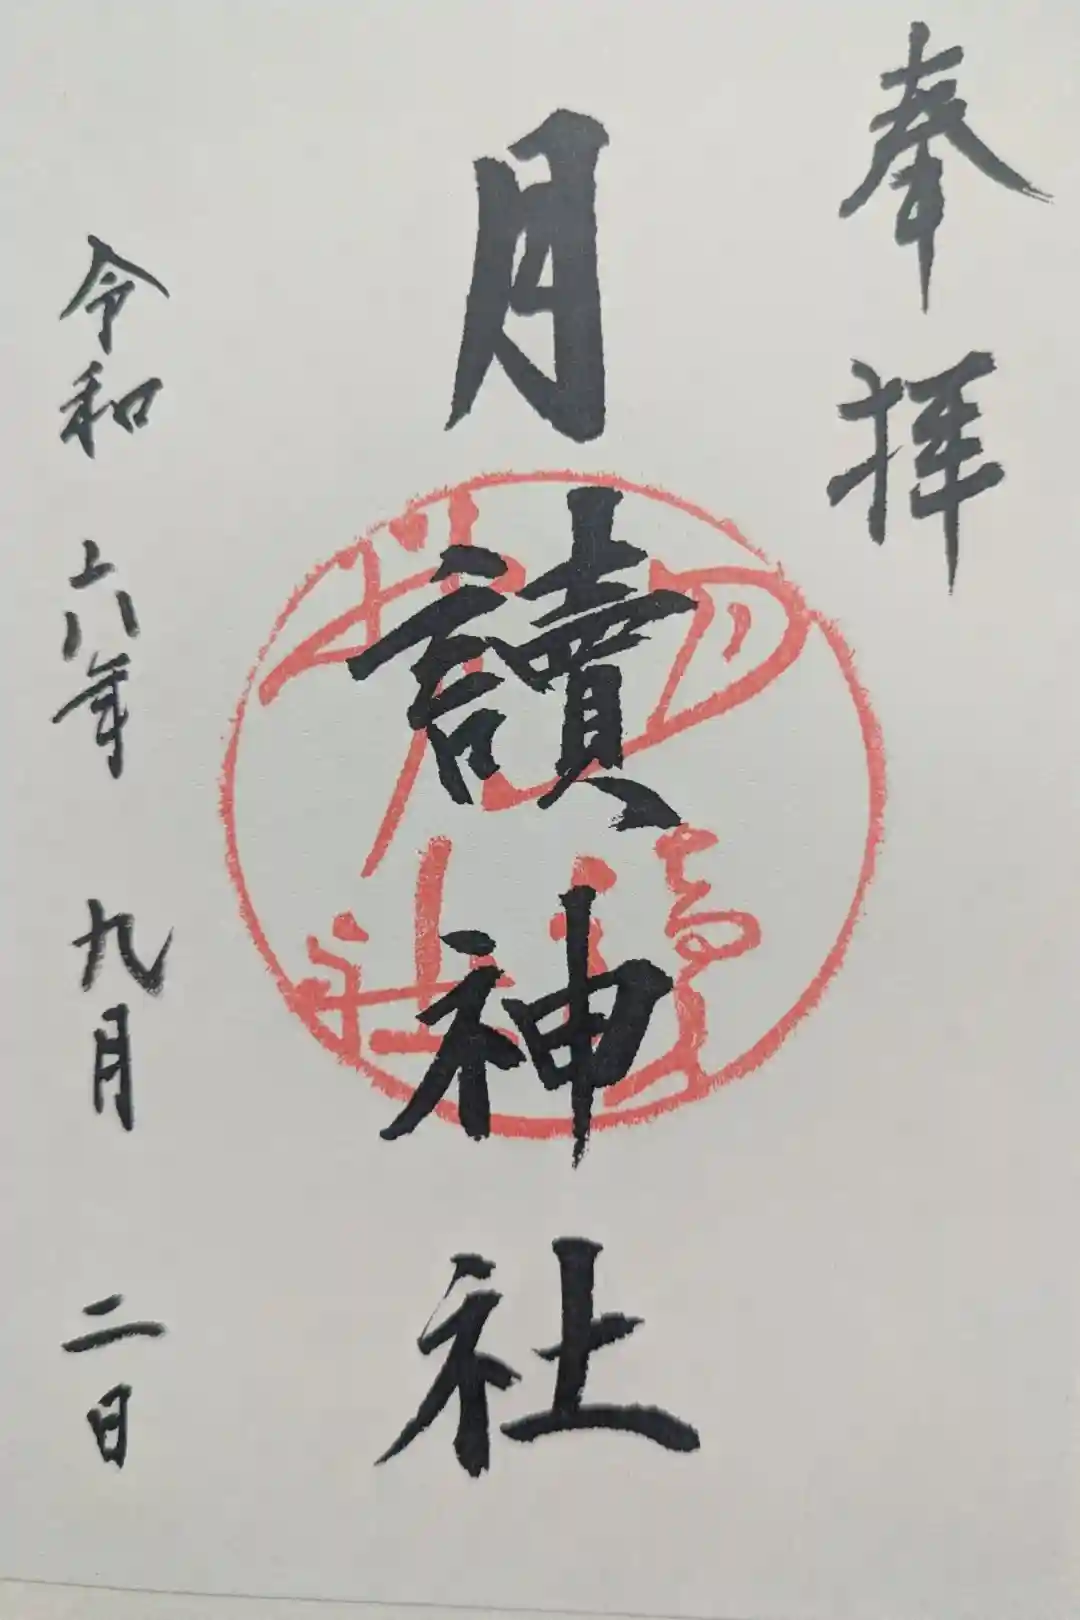 奉拝
月讀神社
令和六年九月二日